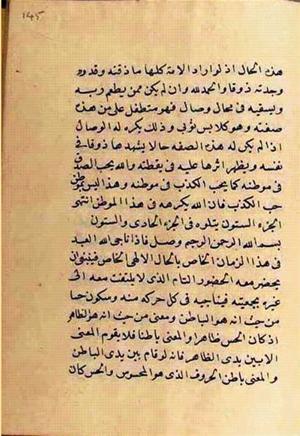 ١٤٥
هذه الحال اذ لو اراد الامة كلها ما ذقته وقد ورد
وجدته ذوقا والحمد لله وان لم يكن ممن يطعم ربه
ويسقيه في محال وصال فهو متطفل على من هذه
صفته وهو كلابس ثوبي وذلك يكره له الوصال
اذا لم يكن له هذه الصفه حالا يشهدها ذوقا في
نفسه ويظهر اثرها عليه في يقظته والله يحب الصدق
في موطنه كما يحب الكذب في موطنه وهذا ليس موطن
حب الكذب فان الله يكرهه في هذا الموطن انتهى
الجزء الستون يتلوه في الجزء الحادى والستون
بسم الله الرحمن الرحيم وصل فاذا ناجى الله العبد
في هذا الزمان الخاص بالحال الالهى الخاص فينبغى ان
يحضر معه الحضور التام الذى لا يلتفت معه الى
غيره بجمعيته فيناجيه في كل حركة منه وسكون حسا
من حيث انه هو الباطن ومعنى من حيث انه هو الظاهر
اذ كان الحس ظاهرا والمعنى باطنا فلا يقوم المعنى
الا بين يدى الظاهر فانه لو قام بين يدى الباطن
والمعنى باطن الحروف الذى هو المحسوس والحس كان